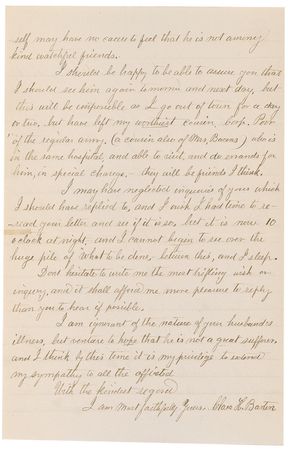 self may have no cause to feel that he is not among
kind watchful friends.
I should be happy to be able to assure you that
I should see him again tomorrow and next day, but
this will be impossible as I go out of town for a day
or two, but have left my worthiest cousin Corp. Poor
of the regular army. (a cousin also of Mrs, ) who is
in the same hospital, and able to visit, and do errands for
him, in special charge, – they will be friends I think.
I may have neglected inquiries of yours which
I should have replied to, and I wish I had time to re-
read your letter and see if it is so, but it is now 10
o'clock at night, and I cannot begin to see over the
huge pile of what to be done, between this, and I sleep.
Dont hesitate to write me the most trifling wish or
inquiry, and it shall afford me more pleasure to reply
than you to hear if possible.
I am ignorant of the nature of your husbands
illness, but venture to hope that he is not a great sufferer,
and I think by this time it is my privilege to extend
my sympathy to all the afflicted
With the kindest regard
I am Most faithfully Yours. Clara H. Barton